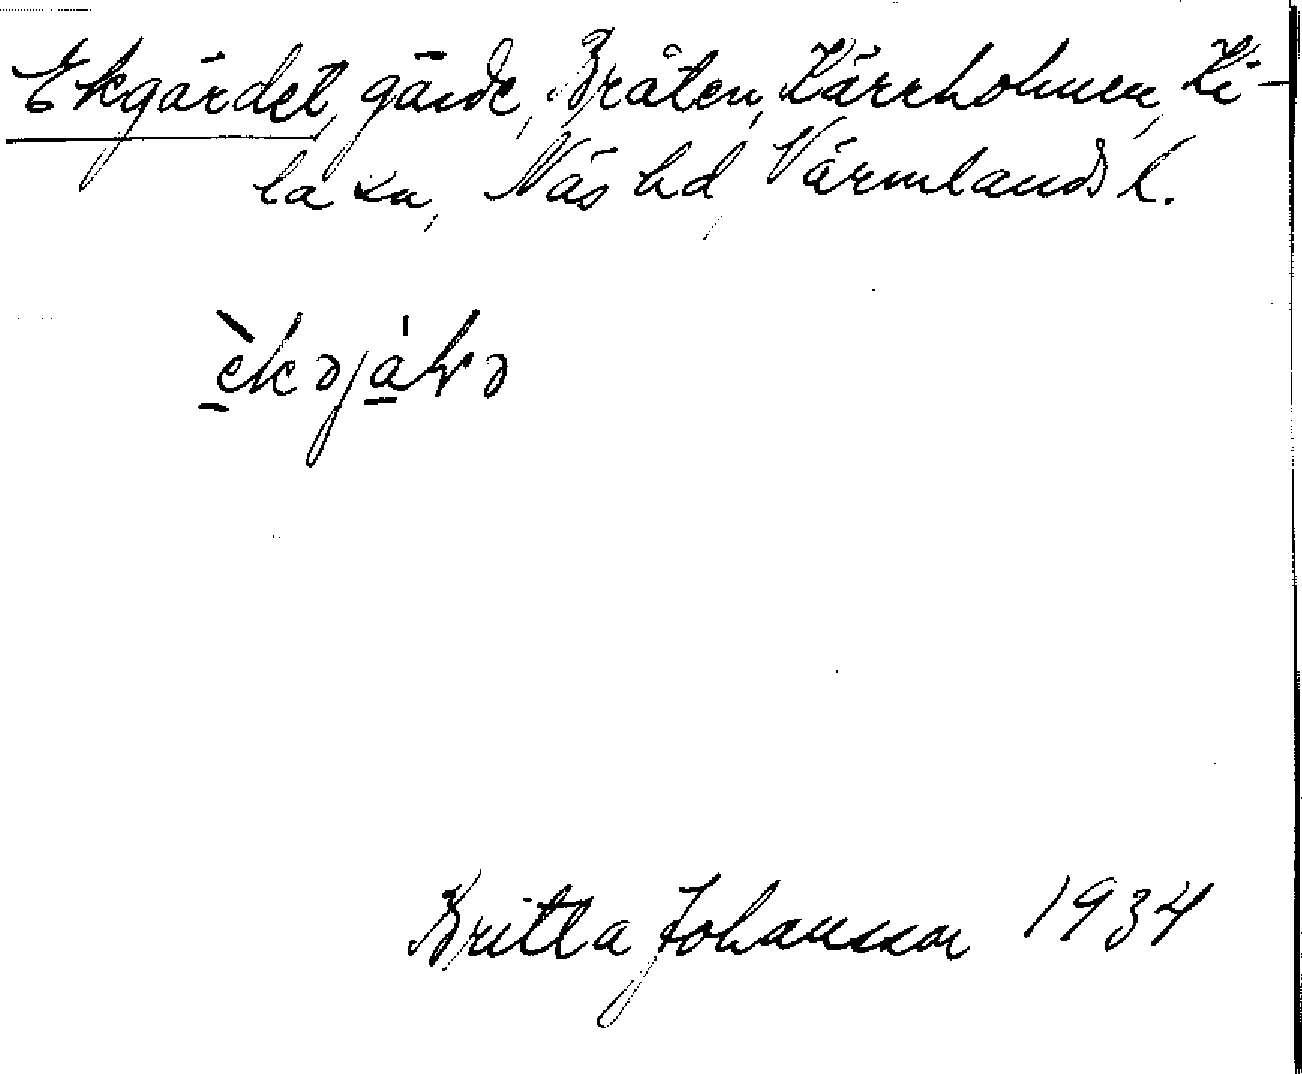 Ekgärdet, gärde, Bråten, Kärrholmen, Ki-
la sn, Näs hd, Värmlands l.
Britta Johansson 1934